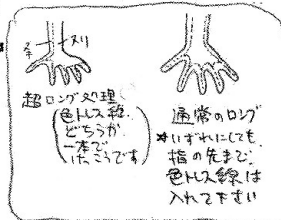 実
ヌリ
超ロング処理
色トレス線.
どちらか
一本で
けっこうです
通常のロング
*いずれにしても.
指の先まで.
色トレス線は
入れて下さい